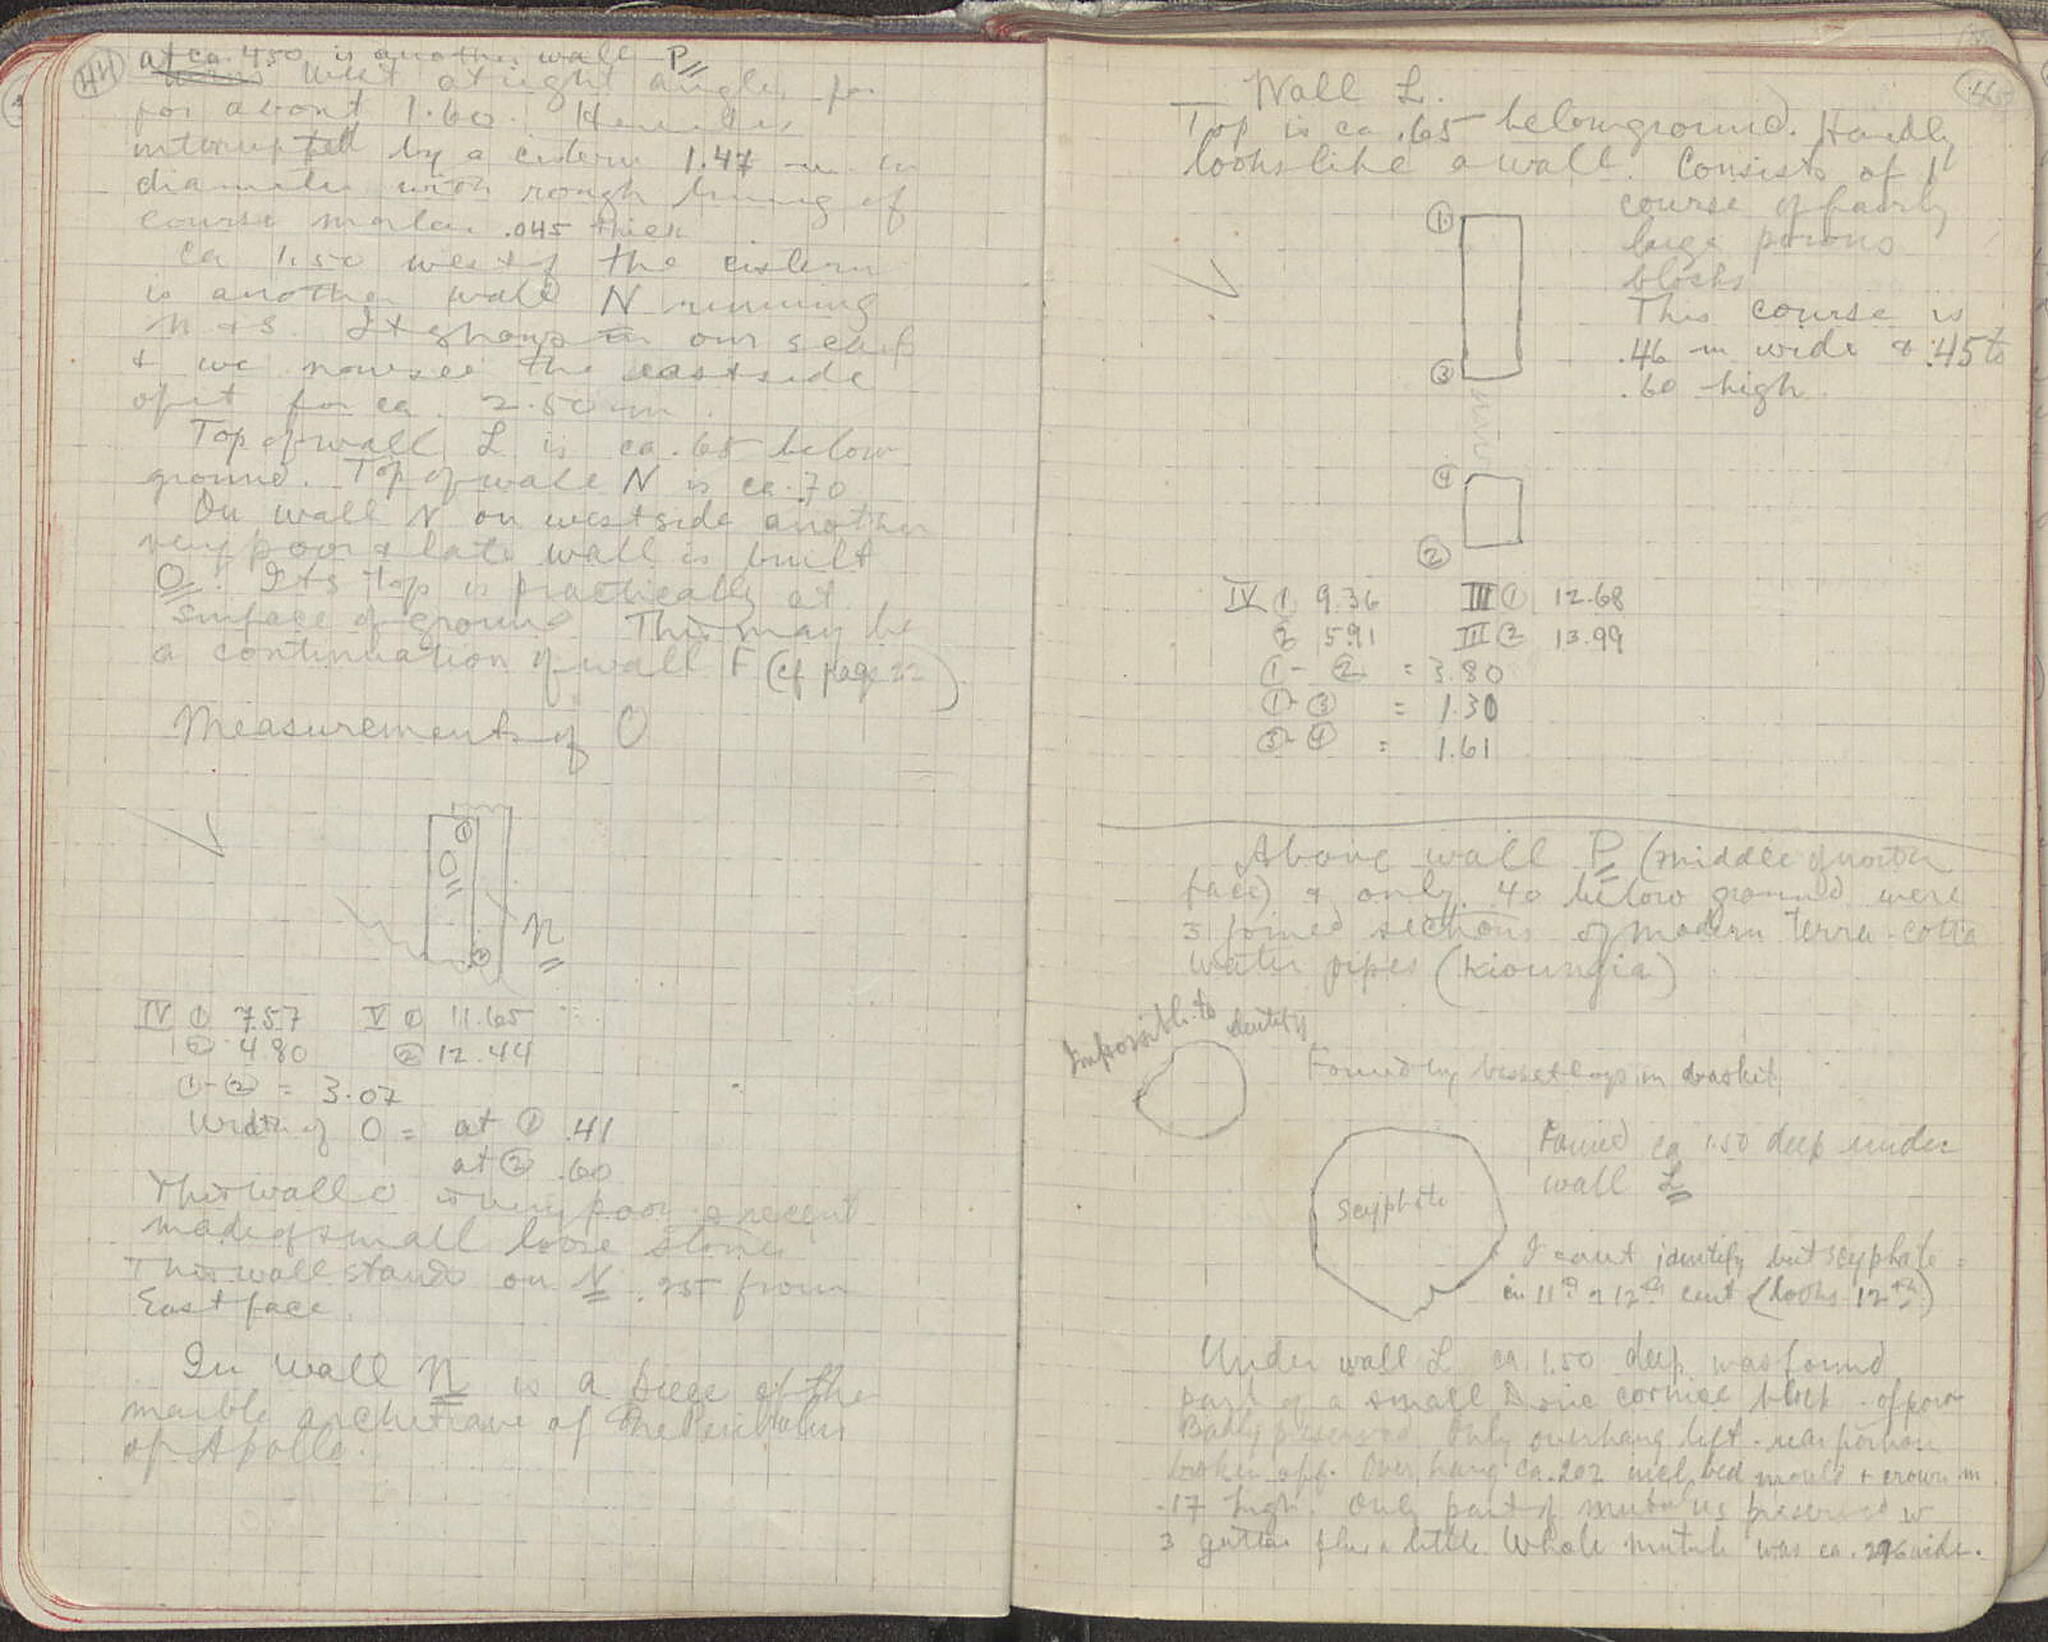 44
at ca. 4.50 is another wall P
west at right angles for
for about 1.60. Here it is
interrupted by a cistern 1.47 m in
diameter with rough lining of
course mortar .045 thick
Ca 1.50 west of the cistern
is another wall N running
N & S. It shows in our scarp
& we now see the east side
of it for ca. 2.50 m.
Top of wall L is ca .65 below
ground. Top of wall N is ca .70
On wall N on west side another
very poor & late wall is built
O. Its top is practically at
surface of ground This may be
a continuation of wall F (cf page 22)
Measurements of O
1
O
2
N
IV 1 7.57 V 1 11.65
2 4.80 2 12.44
1-2 = 3.07
Width of O = at 1 .41
at 2 .60
This wall O is very poor & recent
made of small loose stones
This wall stands on N .25 from
East face.
In wall N is a piece of the
marble architrave of the Peribolus
of Apollo.
Wall L.
Top is ca .65 below ground. Hardly
looks like a wall. Consists of 1
course of fairly
large poros
blocks
This course is
.46 m wide & .45 to
.60 high.
1
3
4
2
IV 1 9.36 III 1 12.68
2 5.91 III 2 13.99
1-2 = 3.80
1-3 = 1.30
3-4 = 1.61
Above wall P (middle of north
face) & only .40 below ground were
3 joined sections of modern terra-cotta
water pipes (kioungia)
Impossible to identify
Found by basket boys in basket
Found ca 1.50 deep under
wall L
scyphate
I can't identify but scyphate =
in 11th or 12th cent (looks 12th)
Under wall L ca 1.50 deep was found
part of a small Doric cornice block of poros
Badly preserved Only overhang left - rear portion
broken off. Overhang ca .202 incl bed mould & crown m
.17 high. Only part of mutulus preserved w
3 guttae plus a little Whole mutule was ca. .296 wide.